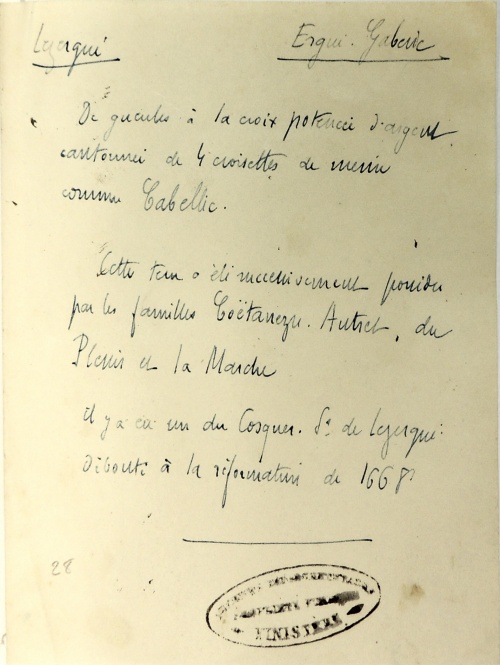 Lezergué
Ergué-Gaberic
De gueules à la croix potencée d'argent
cantonnée de 4 croisettes de même
comme Cabellic.
Cette terre a été successivement possédée
par les familles Coëtanezre, Autret, du
Plessis et la Marche
Il y a eu un du Cosquer. Sr de Lezergué.
Débouté à la réformation de 1668
28
FINISTÈRE